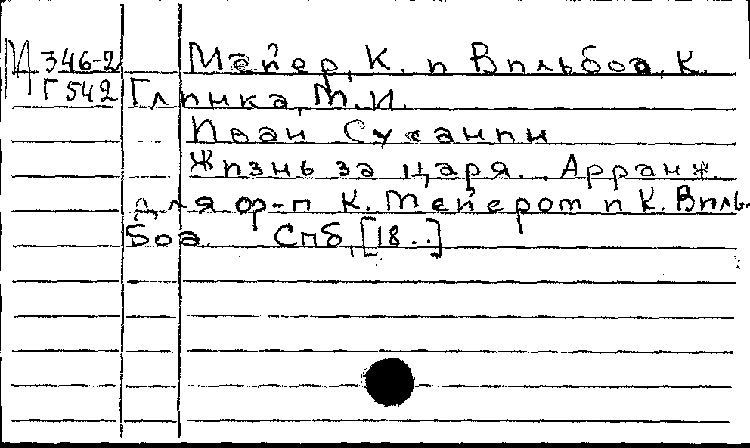 Ц 346-2 Мейер, К. и Вильбоа, К.
Г 542 Глинка, М.И.
Иван Сусанин
Жизнь за царя. Арранж.
для ф-п К. Мейером и К. Виль-
боа. Спб, [18..]